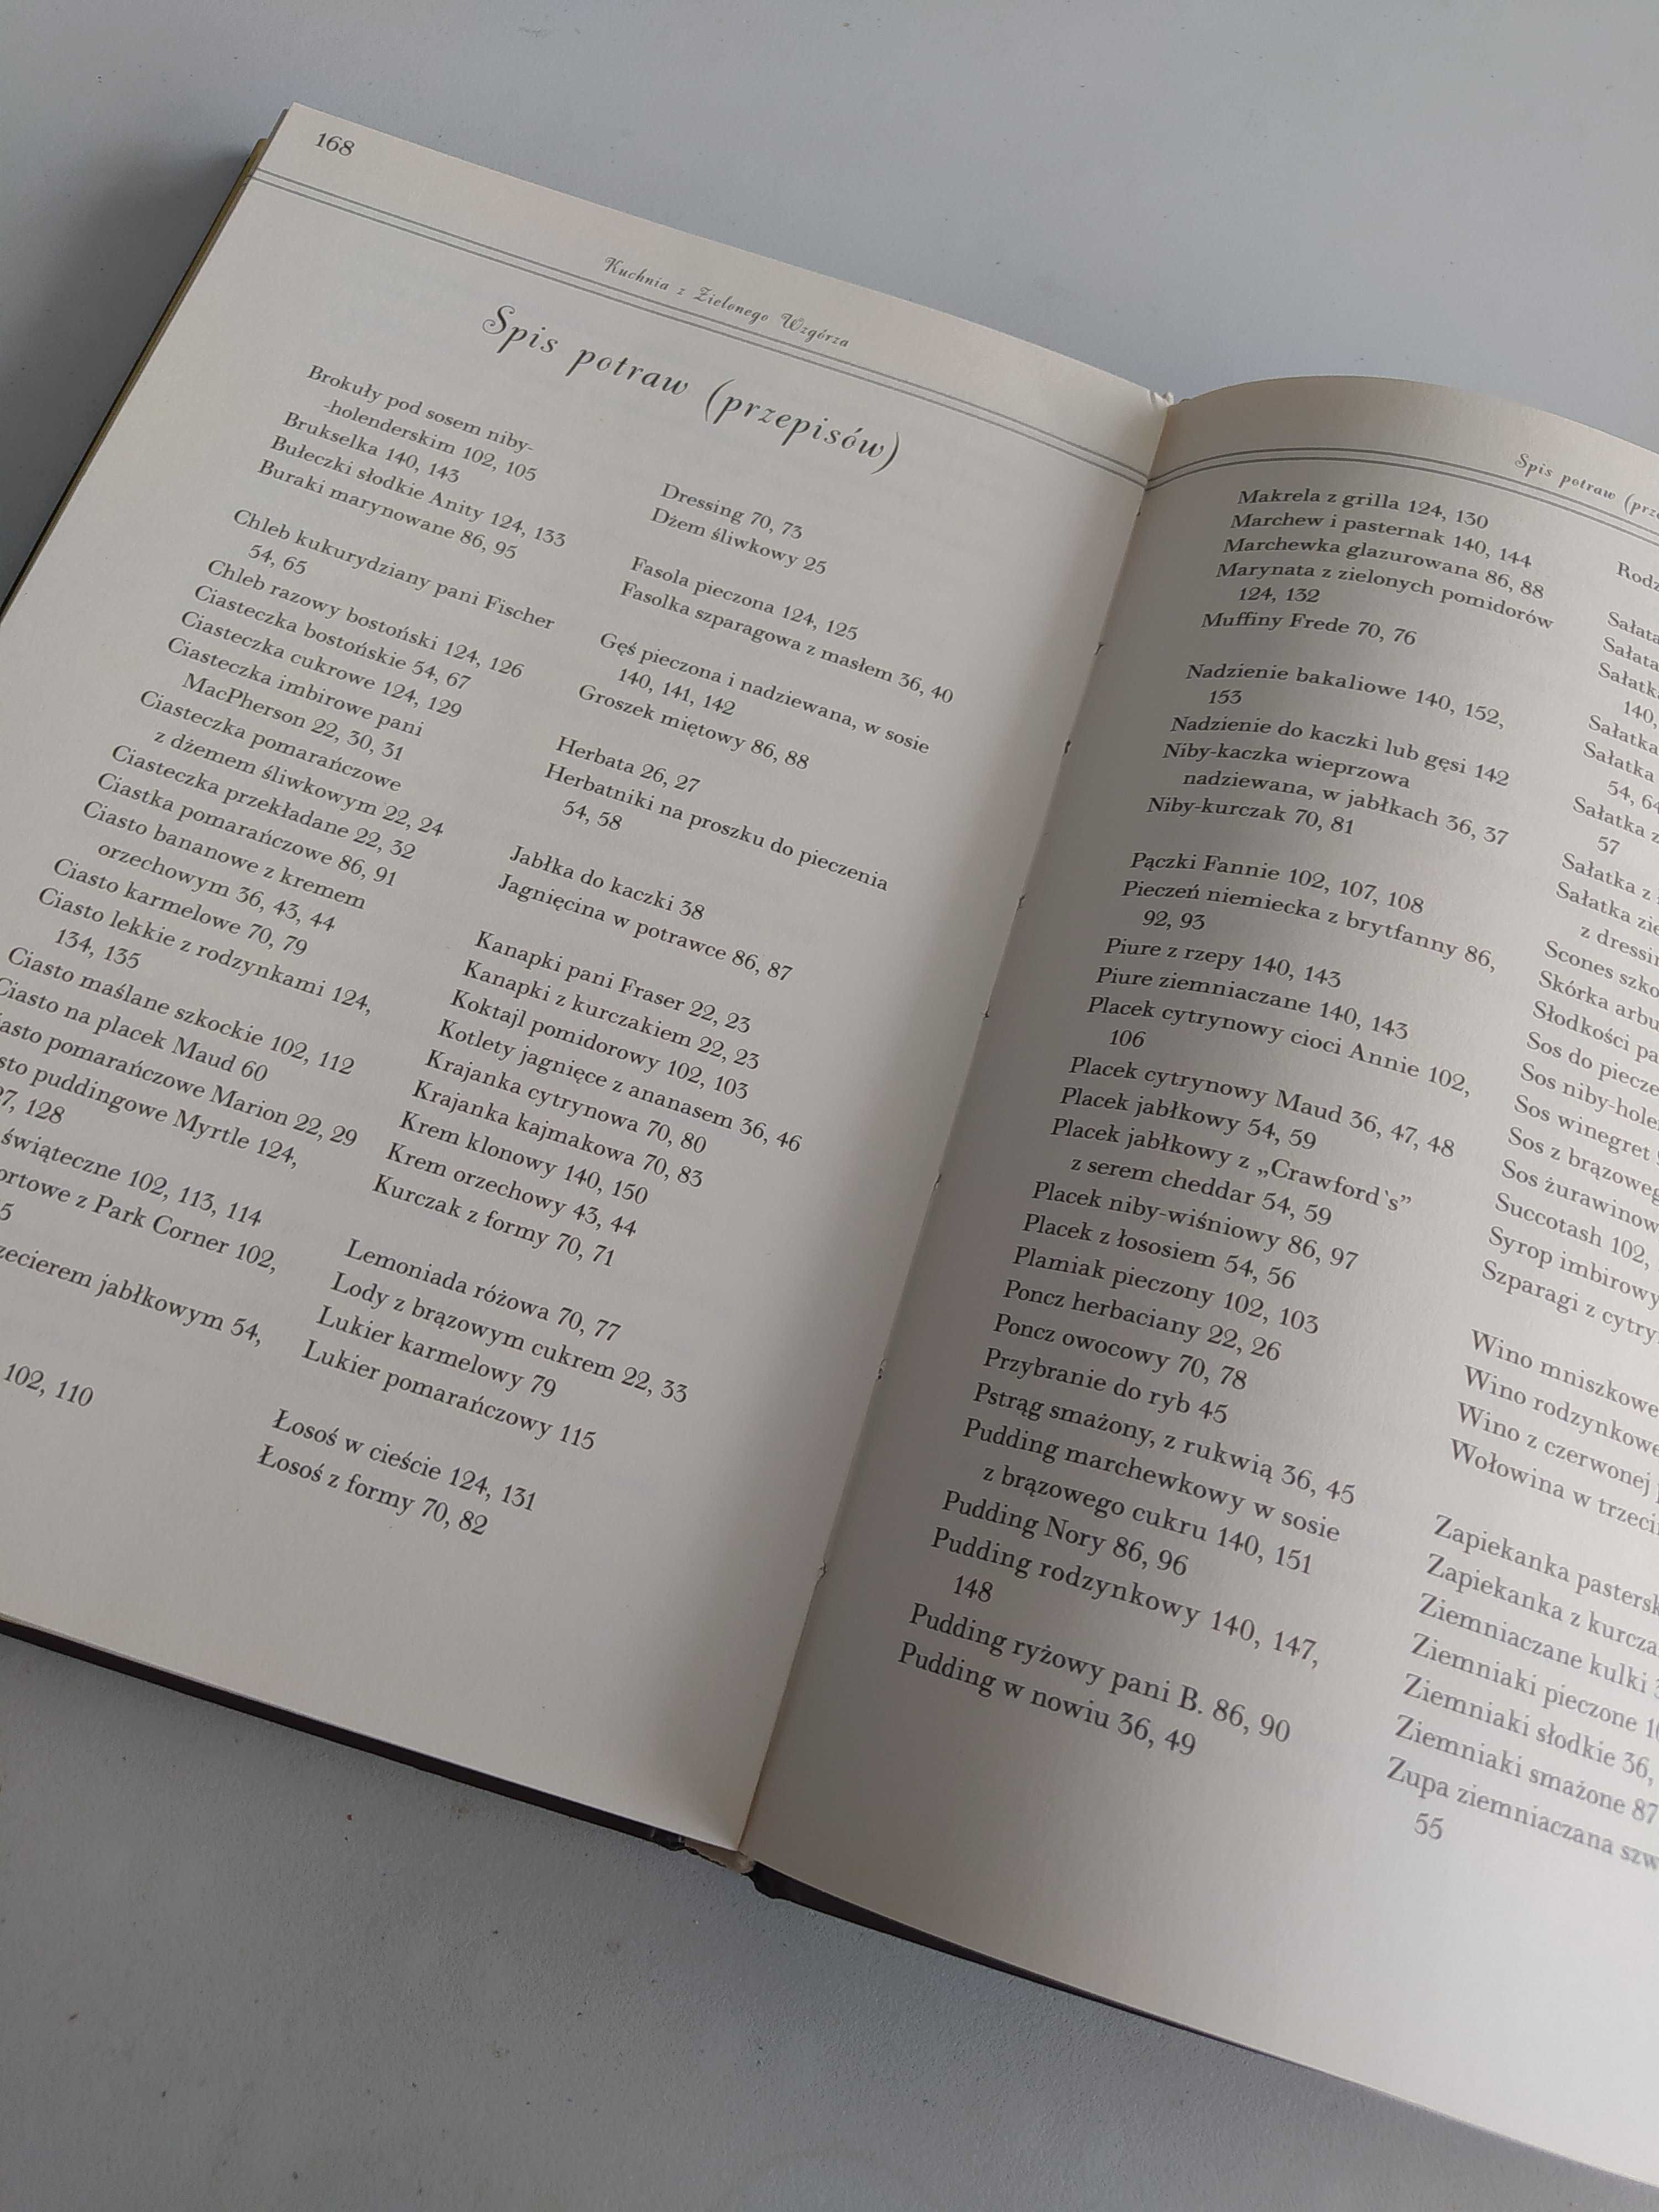 168
Kuchnia z Zielonego Wzgórza
Spis potraw (przepisów)
Brokuły pod sosem niby-
-holenderskim 102, 105
Brukselka 140, 143
Bułeczki słodkie Anity 124, 133
Buraki marynowane 86, 95
Chleb kukurydziany pani Fischer
54, 65
Chleb razowy bostoński 124, 126
Ciasteczka bostońskie 54, 67
Ciasteczka cukrowe 124, 129
Ciasteczka imbirowe pani
MacPherson 22, 30, 31
Ciasteczka pomarańczowe
z dżemem śliwkowym 22, 24
Ciasteczka przekładane 22, 32
Ciastka pomarańczowe 86, 91
Ciasto bananowe z kremem
orzechowym 36, 43, 44
Ciasto karmelowe 70, 79
Ciasto lekkie z rodzynkami 124,
134, 135
Ciasto maślane szkockie 102, 112
Ciasto na placek Maud 60
pomarańczowe Marion 22, 29
puddingowe Myrtle 124,
128
świąteczne 102, 113, 114
z Park Corner 102,
jabłkowym 54,
102, 110
Dressing 70, 73
Dżem śliwkowy 25
Fasola pieczona 124, 125
Fasolka szparagowa z masłem 36, 40
Gęś pieczona i nadziewana, w sosie
140, 141, 142
Groszek miętowy 86, 88
Herbata 26, 27
Herbatniki na proszku do pieczenia
54, 58
Jabłka do kaczki 38
Jagnięcina w potrawce 86, 87
Kanapki pani Fraser 22, 23
Kanapki z kurczakiem 22, 23
Koktajl pomidorowy 102, 103
Kotlety jagnięce z ananasem 36, 46
Krajanka cytrynowa 70, 80
Krajanka kajmakowa 70, 83
Krem klonowy 140, 150
Krem orzechowy 43, 44
Kurczak z formy 70, 71
Lemoniada różowa 70, 77
Lody z brązowym cukrem 22, 33
Lukier karmelowy 79
Lukier pomarańczowy 115
Łosoś w cieście 124, 131
Łosoś z formy 70, 82
Spis potraw
Makrela z grilla 124, 130
Marchew i pasternak 140, 144
Marchewka glazurowana 86, 88
Marynata z zielonych pomidorów
124, 132
Muffiny Frede 70, 76
Nadzienie bakaliowe 140, 152,
153
Nadzienie do kaczki lub gęsi 142
Niby-kaczka wieprzowa
nadziewana, w jabłkach 36, 37
Niby-kurczak 70, 81
Pączki Fannie 102, 107, 108
Pieczeń niemiecka z brytfanny 86,
92, 93
Piure z rzepy 140, 143
Piure ziemniaczane 140, 143
Placek cytrynowy cioci Annie 102,
106
Placek cytrynowy Maud 36, 47, 48
Placek jabłkowy 54, 59
Placek jabłkowy z „Crawford`s”
z serem cheddar 54, 59
Placek niby-wiśniowy 86, 97
Placek z łososiem 54, 56
Plamiak pieczony 102, 103
Poncz herbaciany 22, 26
Poncz owocowy 70, 78
Przybranie do ryb 45
Pstrąg smażony, z rukwią 36, 45
Pudding marchewkowy w sosie
z brązowego cukru 140, 151
Pudding Nory 86, 96
Pudding rodzynkowy 140, 147,
148
Pudding ryżowy pani B. 86, 90
Pudding w nowiu 36, 49
140,
Sałatka
54,
Sałatka z
57
Sałatka z
Sałatka
z
Scones
Skórka
Słodkości
Sos do
Sos
Sos winegret
Sos z
Sos
Succotash 102,
Syrop imbirowy
Szparagi z
Wino
Wino
Wino z czerwonej
Wołowina w
Zapiekanka
Zapiekanka z
Ziemniaczane kulki
Ziemniaki pieczone
Ziemniaki słodkie 36,
Ziemniaki smażone 87
Zupa ziemniaczana
55